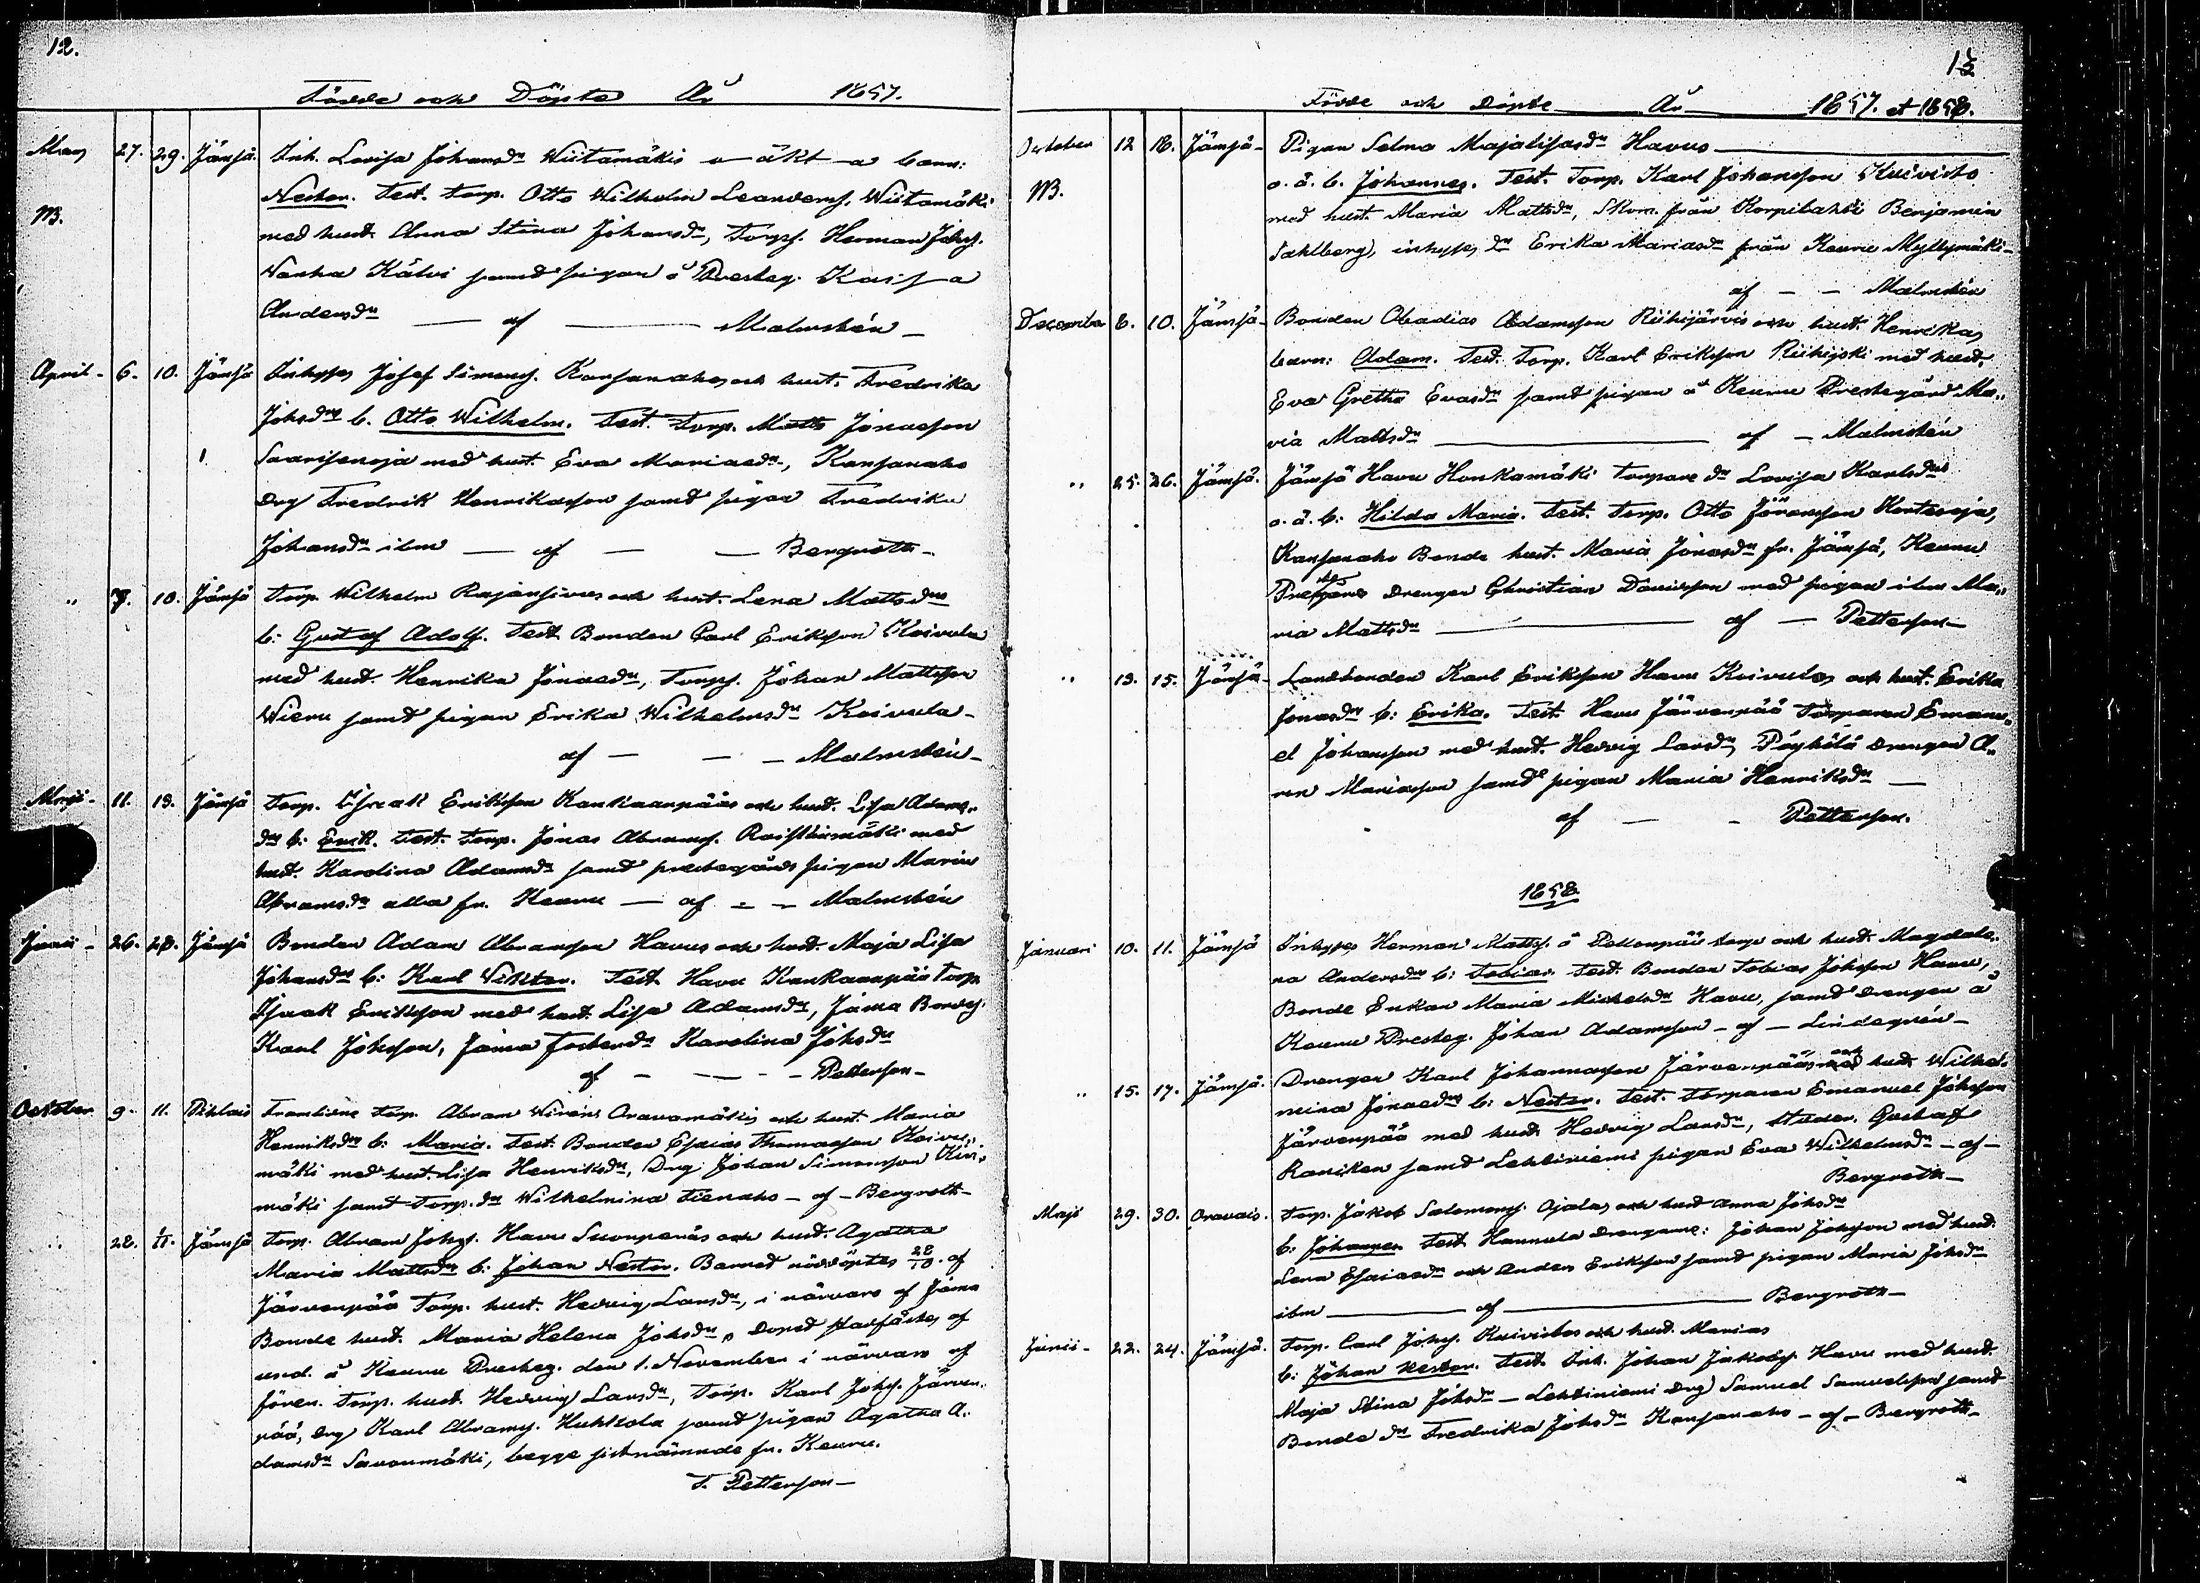 12.
Födde och Döpte År 1857.
Mars 27. 29. Jämsä. Inh. Lovisa Johansdr Wiitamäkis o äkt a barn:
NB. Nestor. Test. Torp. Otto Wilhelm Leandersf. Wiitamäki
med hust. Anna Stina Johansdr, Torps. Herman Johsf.
Wanha Kälvi samt pigan å Presteg. Kaisa
Andersdr — af — Malmstén —
April - 6. 10. Jämsä Inhyses Josef Simonsf. Kansanahos och hust. Fredrika
Johsdrs b. Otto Wilhelm. Test. Torp. Matts Jonasson
Saarisenoja med hust. Eva Mariasdr, Kansanaho
drg Fredrik Henriksson samt pigan Fredrika
Johansdr ibm — af — — Bergroth —
" 7. 10. Jämsä Torp. Wilhelm Rajansivus och hust. Lena Mattsdrs
b: Gustaf Adolf. Test. Bonden Carl Eriksson Koivula
med hust. Henrika Jonasdr, Torps. Johan Mattsson
Wieru samt pigan Erika Wilhelmsdr Koivula -
af — — — Malmstén —
Maji - 11. 13. Jämsä Torp. Isaak Eriksson Kankaanpääs och hust. Lisa Adams„
drs b: Erik. Test. Torp. Jonas Abramsf. Raiskinmäki med
hust. Karolina Adamsdr samt prestegårds pigan Maria
Abramsdr alla fr. Keuru — af — — Malmstén
Junii - 26. 28. Jämsä Bonden Adam Abramsson Havus och hust. Maja Lisa
Johansdrs b: Karl Viktor. Test. Havu Kankaanpää Torp.
Isaak Eriksson med hust. Lisa Adamsdr, Jämsä Bondes.
Karl Johsson, Jämsä Fosterdr Karolina Johsdr
af — — — Pettersson —
October 9. 11. Pihlais Framlidne Torp. Abram Wirens Oravamäkis och hust. Maria
Henriksdrs b: Maria. Test. Bonden Esaias Thomasson Koivu„
mäki med hust. Lisa Henriksdr, Drg Johan Simonsson Kivi„
mäki samt Torp.dr Wilhelmina Tienaho - af - Bergroth -
" 28. 1/11. Jämsä Torp. Abram Johsf. Havu Suonperäs och hust. Agatha
Maria Mattsdrs b: Johan Nestor. Barnet nöddöptes 28/10. af
Järvenpää Torp. hust. Hedvig Larsdr, i närvaro af Jämsä
Bonde hust. Maria Helena Johsdr, dopet stadfästes af
und. å Keuru Presteg. den 1. November i närvaro af
fören. Torp. hust. Hedvig Larsdr, Torp. Karl Johsf. Järven„
pää, drg Karl Abramsf. Huhkola samt pigan Agatha A„
damsdr Savonmäki, begge sistnämnde fr. Keuru.
T. Pettersson —
13
Födde och Döpte År 1857. et 1858.
October 12 18. Jämsä - Pigan Selma Majalisasdr Havus
NB. o. ä. b. Johannes. Test. Torp. Karl Johansson Kuivisto
med hust. Maria Mattsdr, Skom. från Korpilahti Benjamin
Sahlberg, inhyses dr Erika Mariasdr från Keuru Myllymäki -
af — — Malmstén
December 6. 10. Jämsä - Bonden Abadias Adamsson Riihijärvis och hust. Henrikas
barn: Adam. Test. Torp. Karl Eriksson Riihijoki med hust.
Eva Gretha Evasdr samt pigan å Keuru Prestegård Ma„
ria Mattsdr — af — Malmstén
" 25. 26. Jämsä. Jämsä Havu Honkamäki Torpare dr Lovisa Karlsdrs
o. ä. b: Hilda Maria. Test. Torp. Otto Göransson Kortesoja,
Kansanaho Bonde hust. Maria Jonasdr fr. Jämsä, Keuru
Prestgårds Drengen Christian Davidsson med pigan ibm Ma„
ria Mattsdr — af — Pettersson —
" 13. 15. Jämsä - Landbonden Karl Eriksson Havu Koivulas och hust. Erika
Jonasdrs b: Erika. Test. Havu Järvenpää Torparen Emanu„
el Johansson med hust. Hedvig Larsdr, Pöyhölä drengen A„
ron Mariasson samt pigan Maria Henriksdr —
af — - Pettersson.
1858.
Januari 10. 11. Jämsä Inhyses Herman Mattsf. å Pellonpää torp och hust. Magdale„
na Andersdrs b: Tobias. Test. Bonden Tobias Johsson Havu,
Bonde Enkan Maria Michelsdr Havu, samt drengen å
Keuru Presteg. Johan Adamsson - af - Lindeqvén -
" 15. 17. Jämsä. Drengen Karl Johannesson Järvenpääs och hust. Wilhel„
mina Jonasdrs b: Nestor. Test. Torparen Emanuel Johsson
Järvenpää med hust. Hedvig Larsdr, Studer. Gustaf
Raniken samt Lehtiniemi pigan Eva Wilhelmsdr - af -
Bergroth —
Maji 29. 30. Oravais. Torp. Jakob Salomonsf. Ojalas och hust. Anna Johsdrs
b: Johannes. Test. Hannula drengarne: Johan Johsson med hust.
Lena Esaiasdr och Anders Eriksson samt pigan Maria Johsdr
ibm — af — Bergroth —
Junii - 22. 24. Jämsä. Torp. Carl Johsf. Kuivistos och hust. Marias
b: Johan Nestor. Test. Inh. Johan Jakobsf. Havu med hust.
Maja Stina Johsdr — Lehtiniemi drg Samuel Samuelsson samt
Bonde dr Fredrika Johsdr Kansanaho - af - Bergroth -